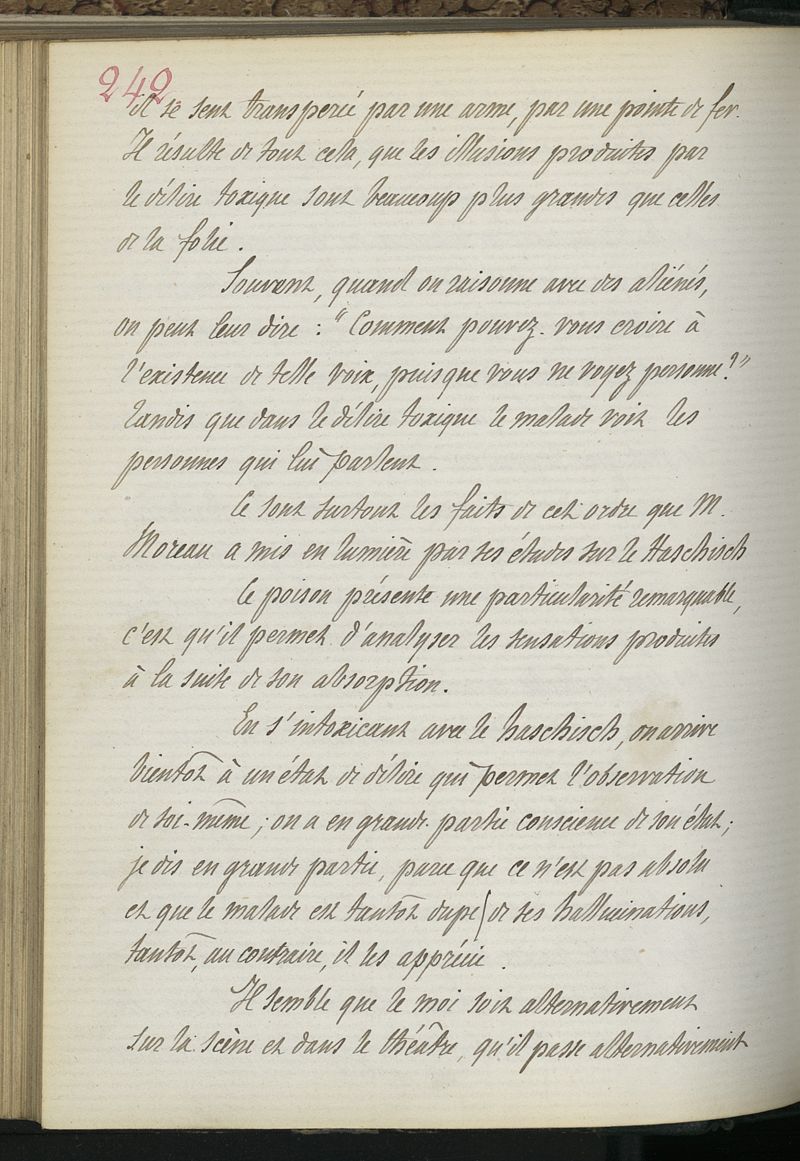 242
il se sent transpercé par une arme, par une pointe de fer.
Il résulte de tout cela, que les illusions produites par
le délire toxique sont beaucoup plus grandes que celles
de la folie.
Souvent, quand on raisonne avec des aliénés,
on peut leur dire : "Comment pouvez-vous croire à
l'existence de telle voix, puisque vous ne voyez personne?"
tandis que dans le délire toxique le malade voit les
personnes qui lui parlent.
Ce sont surtout les faits de cet ordre que M.
Moreau a mis en lumière par ses études sur le Haschisch
Ce poison présente une particularité remarquable,
c'est qu'il permet d'analyser les sensations produites
à la suite de son absorption.
En s'intoxicant avec le haschisch, on arrive
bientôt à un état de délire qui permet l'observation
de soi-même ; on a en grande partie conscience de son état ;
je dis en grande partie, parce que ce n'est pas absolu
et que le malade est tantôt dupe de ses hallucinations,
tantôt, au contraire, il les apprécie.
Il semble que le moi soit alternativement
sur la scène et dans le théâtre, qu'il passe alternativement